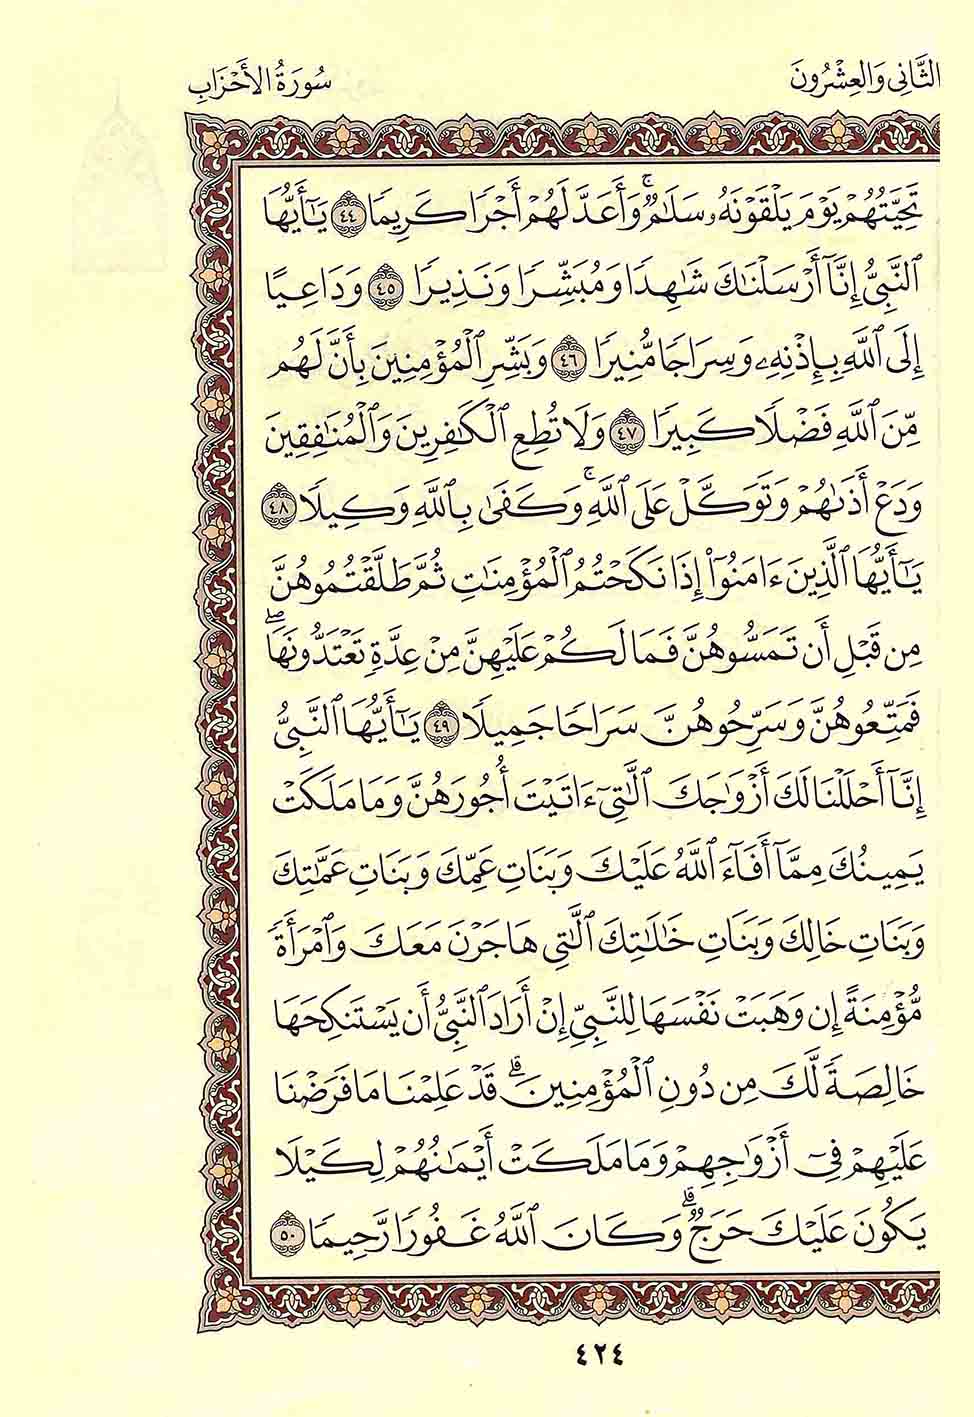 الثَّانِي وَالعِشْرُونَ
سُورَةُ الأَحْزَابِ
تَحِيَّتُهُمْ يَوْمَ يَلْقَوْنَهُۥ سَلَٰمٌۚ وَأَعَدَّ لَهُمْ أَجْرًا كَرِيمًا ٤٤ يَٰٓأَيُّهَا
ٱلنَّبِيُّ إِنَّآ أَرْسَلْنَٰكَ شَٰهِدًا وَمُبَشِّرًا وَنَذِيرًا ٤٥ وَدَاعِيًا
إِلَى ٱللَّهِ بِإِذْنِهِۦ وَسِرَاجًا مُّنِيرًا ٤٦ وَبَشِّرِ ٱلْمُؤْمِنِينَ بِأَنَّ لَهُم
مِّنَ ٱللَّهِ فَضْلًا كَبِيرًا ٤٧ وَلَا تُطِعِ ٱلْكَٰفِرِينَ وَٱلْمُنَٰفِقِينَ
وَدَعْ أَذَىٰهُمْ وَتَوَكَّلْ عَلَى ٱللَّهِۚ وَكَفَىٰ بِٱللَّهِ وَكِيلًا ٤٨
يَٰٓأَيُّهَا ٱلَّذِينَ ءَامَنُوٓا۟ إِذَا نَكَحْتُمُ ٱلْمُؤْمِنَٰتِ ثُمَّ طَلَّقْتُمُوهُنَّ
مِن قَبْلِ أَن تَمَسُّوهُنَّ فَمَا لَكُمْ عَلَيْهِنَّ مِنْ عِدَّةٍ تَعْتَدُّونَهَاۖ
فَمَتِّعُوهُنَّ وَسَرِّحُوهُنَّ سَرَاحًا جَمِيلًا ٤٩ يَٰٓأَيُّهَا ٱلنَّبِيُّ
إِنَّآ أَحْلَلْنَا لَكَ أَزْوَٰجَكَ ٱلَّٰتِيٓ ءَاتَيْتَ أُجُورَهُنَّ وَمَا مَلَكَتْ
يَمِينُكَ مِمَّآ أَفَآءَ ٱللَّهُ عَلَيْكَ وَبَنَاتِ عَمِّكَ وَبَنَاتِ عَمَّٰتِكَ
وَبَنَاتِ خَالِكَ وَبَنَاتِ خَٰلَٰتِكَ ٱلَّٰتِي هَاجَرْنَ مَعَكَ وَٱمْرَأَةً
مُّؤْمِنَةً إِن وَهَبَتْ نَفْسَهَا لِلنَّبِيِّ إِنْ أَرَادَ ٱلنَّبِيُّ أَن يَسْتَنكِحَهَا
خَالِصَةً لَّكَ مِن دُونِ ٱلْمُؤْمِنِينَۗ قَدْ عَلِمْنَا مَا فَرَضْنَا
عَلَيْهِمْ فِيٓ أَزْوَٰجِهِمْ وَمَا مَلَكَتْ أَيْمَٰنُهُمْ لِكَيْلَا
يَكُونَ عَلَيْكَ حَرَجٌۗ وَكَانَ ٱللَّهُ غَفُورًا رَّحِيمًا ٥٠
٤٢٤